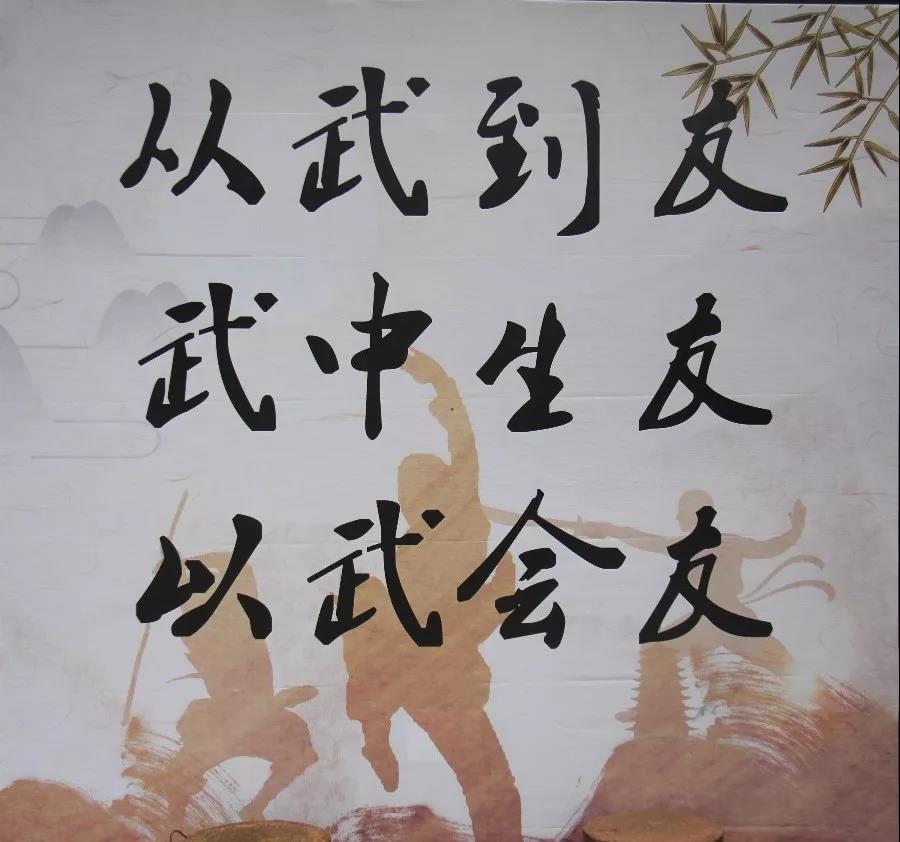 从武到友
武中生友
以武会友